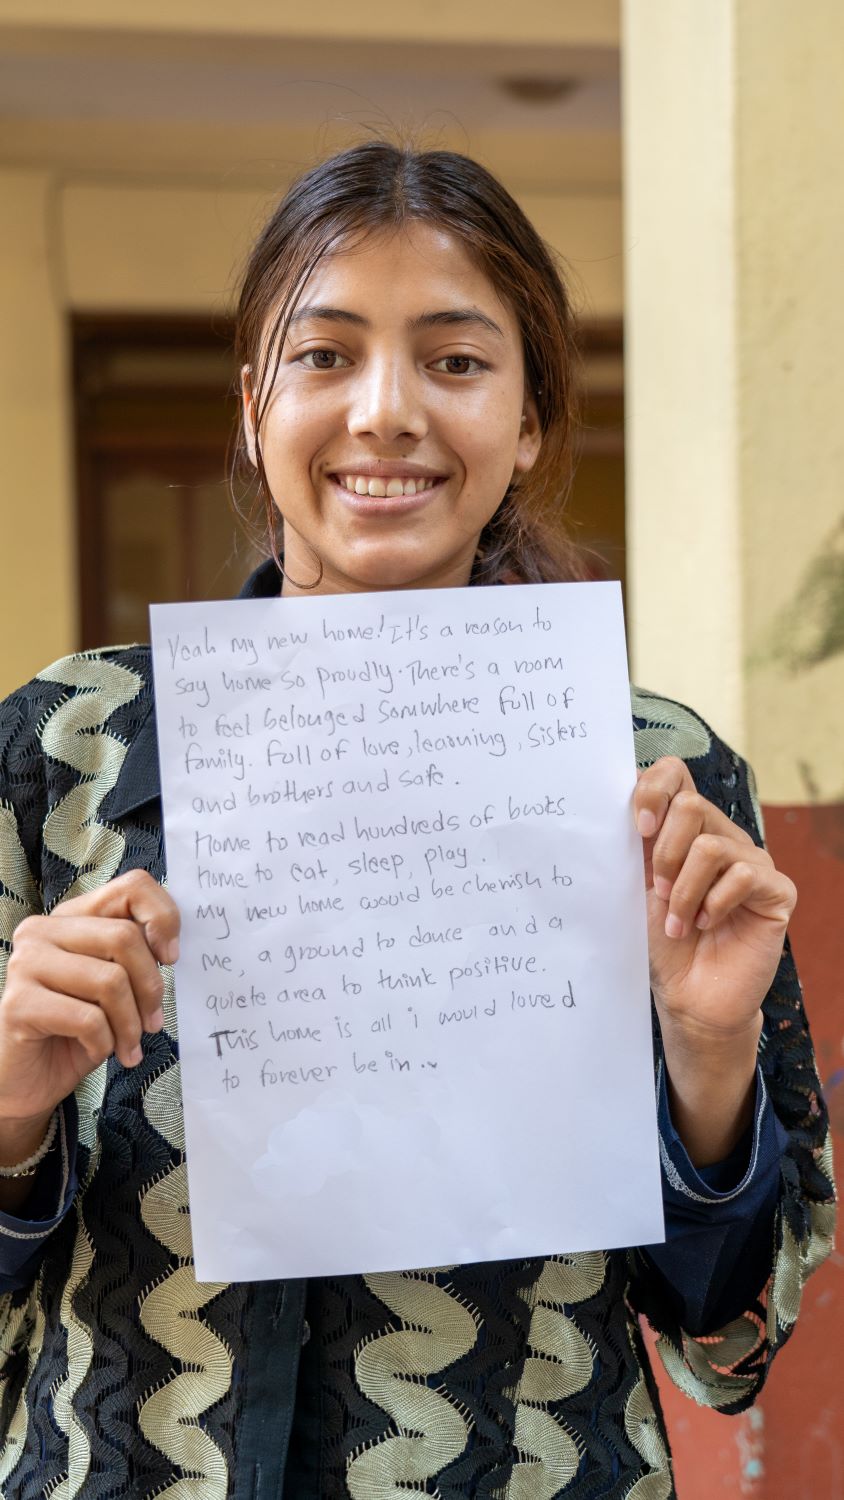 Yeah my new home! It's a reason to
say home so proudly. There's a room
to feel belonged somwhere full of
family. Full of love, learning, sisters
and brothers and safe.
Home to read hundreds of books.
Home to eat, sleep, play.
My new home would be cherish to
me, a ground to dance and a
quiete area to think positive.
This home is all i would loved
to forever be in..